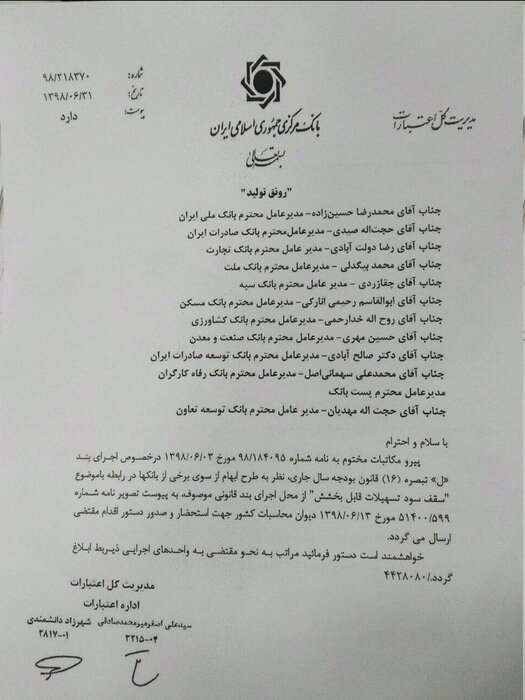 شماره: ۹۸/۲۱۸۳۷۰
تاریخ: ۱۳۹۸/۰۶/۳۱
پیوست: دارد
بانک مرکزی جمهوری اسلامی ایران
مدیریت کل اعتبارات
بسمه تعالی
"رونق تولید"
جناب آقای محمدرضا حسین‌زاده– مدیرعامل محترم بانک ملی ایران
جناب آقای حجت‌اله صیدی– مدیرعامل‌محترم بانک صادرات ایران
جناب آقای رضا دولت آبادی– مدیر عامل محترم بانک تجارت
جناب آقای محمد بیگدلی – مدیرعامل محترم بانک ملت
جناب آقای چقازردی – مدیر عامل محترم بانک سپه
جناب آقای ابوالقاسم رحیمی انارکی– مدیرعامل محترم بانک مسکن
جناب آقای روح اله خدارحمی– مدیرعامل محترم بانک کشاورزی
جناب آقای حسین مهری– مدیرعامل محترم بانک صنعت و معدن
جناب آقای دکتر صالح آبادی– مدیرعامل محترم بانک توسعه صادرات ایران
جناب آقای محمدعلی سهمانی‌اصل– مدیرعامل محترم بانک رفاه کارگران
مدیرعامل محترم پست بانک
جناب آقای حجت اله مهدیان– مدیر عامل محترم بانک توسعه تعاون
با سلام و احترام
پیرو مکاتبات مختوم به نامه شماره ۹۸/۱۸۴۰۹۵ مورخ ۱۳۹۸/۰۶/۰۳ درخصوص اجرای بند
«ل» تبصره (۱۶) قانون بودجه سال جاری، نظر به طرح ابهام از سوی برخی از بانکها در رابطه باموضوع
"سقف سود تسهیلات قابل بخشش" از محل اجرای بند قانونی موصوف، به پیوست تصویر نامه شماره
۵۱۴۰۰/۵۹۹ مورخ ۱۳۹۸/۰۶/۱۳ دیوان محاسبات کشور جهت استحضار و صدور دستور اقدام مقتضی
ارسال می گردد.
خواهشمند است دستور فرمائید مراتب به نحو مقتضی به واحدهای اجرایی ذیربط ابلاغ
گردد./۴۴۲۸۰۸۰
مدیریت کل اعتبارات
اداره اعتبارات
سیدعلی اصغرمیرمحمدصادقی شهرزاد دانشمندی
۳۲۱۵-۰۴ ۲۸۱۷-۰۱